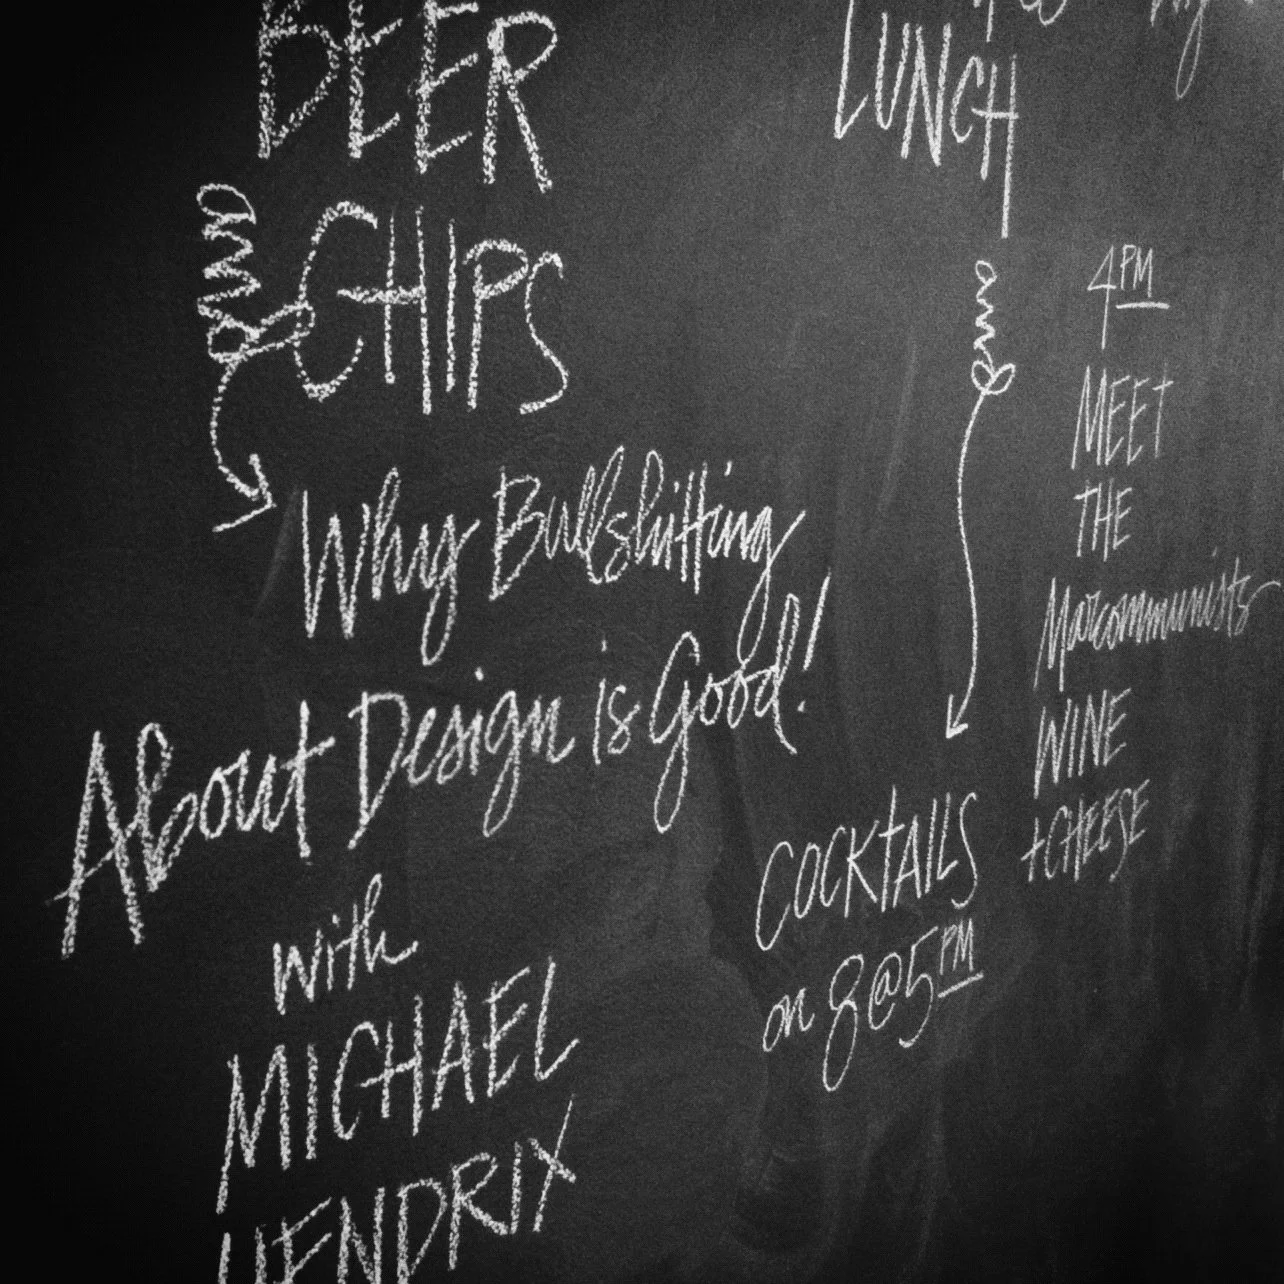 BEER
and CHIPS
Why Bullshitting
About Design is Good!
with
MICHAEL
HENDRIX
LUNCH
and
COCKTAILS
on 8@5PM
4PM
MEET
THE
Marcommunists
WINE
+CHEESE